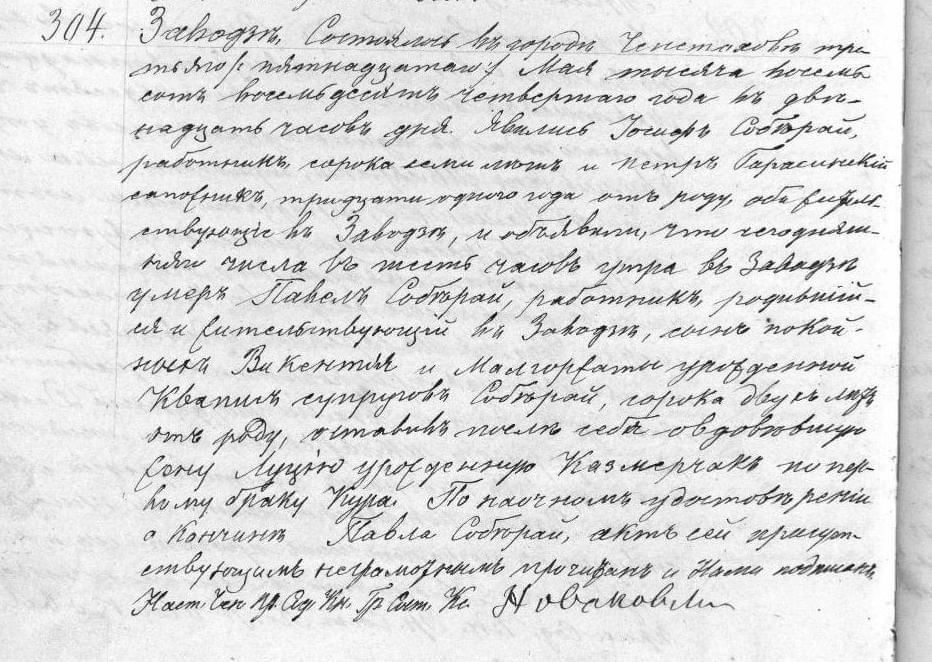 304. Заводзе. Состоялось въ городѣ Ченстоховѣ тре-
тьяго /: пятнадцатаго :/ Мая тысяча восемь
сотъ восемьдесятъ четвертаго года въ двѣ-
надцать часовъ дня. Явились Іосифъ Собѣрай,
работникъ, сорока семи лѣтъ и Петръ Гарасинскій
сапожникъ, тридцати одного года отъ роду, оба житель-
ствующіе въ Заводзѣ, и объявили, что сегодняш-
няго числа въ шесть часовъ утра въ Заводзѣ
умеръ Павелъ Собѣрай, работникъ, родившій-
ся и жительствующій въ Заводзѣ, сынъ покой-
ныхъ Викентія и Малгоржаты урожденной
Квапишъ супруговъ Собѣрай, сорока двухъ лѣтъ
отъ роду, оставивъ послѣ себя овдовѣвшую
жену Луцію урожденную Казмерчакъ по пер-
вому браку Кура. По наочномъ удостовѣреніи
о кончинѣ Павла Собѣрай, актъ сей присут-
ствующимъ неграмотнымъ прочитанъ и Нами подписанъ
Наст. Чен. Пр. Сод. Кн. Гр. Сост. Кс.